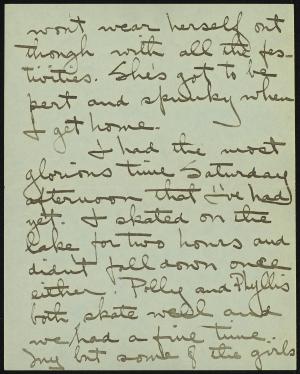 won't wear herself out
though with all the fes-
tivities. She's got to be
pert and spunky when
I get home.
I had the most
glorious time Saturday
afternoon that I've had
yet. I skated on the
lake for two hours and
didn't fall down once
either Polly and Phyllis
both skate well and
we had a fine time.
My but some of the girls